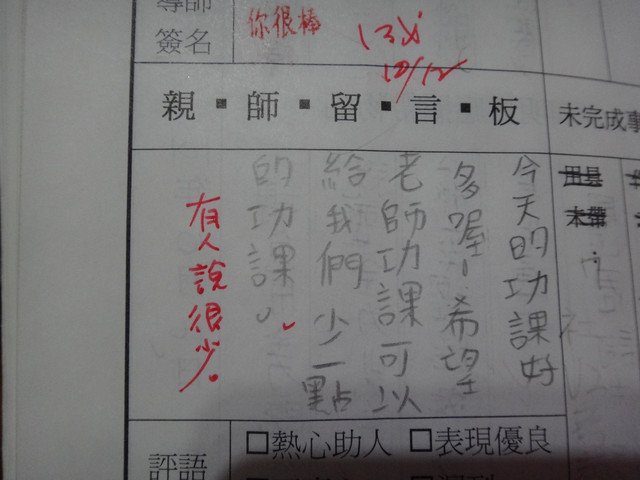 導師
簽名
你很棒
10/12
親▪師▪留▪言▪板
未完成事
今天的功課好
多喔!希望
老師功課可以
給我們少一點
的功課
有人說很少。
評語
□熱心助人 □表現優良